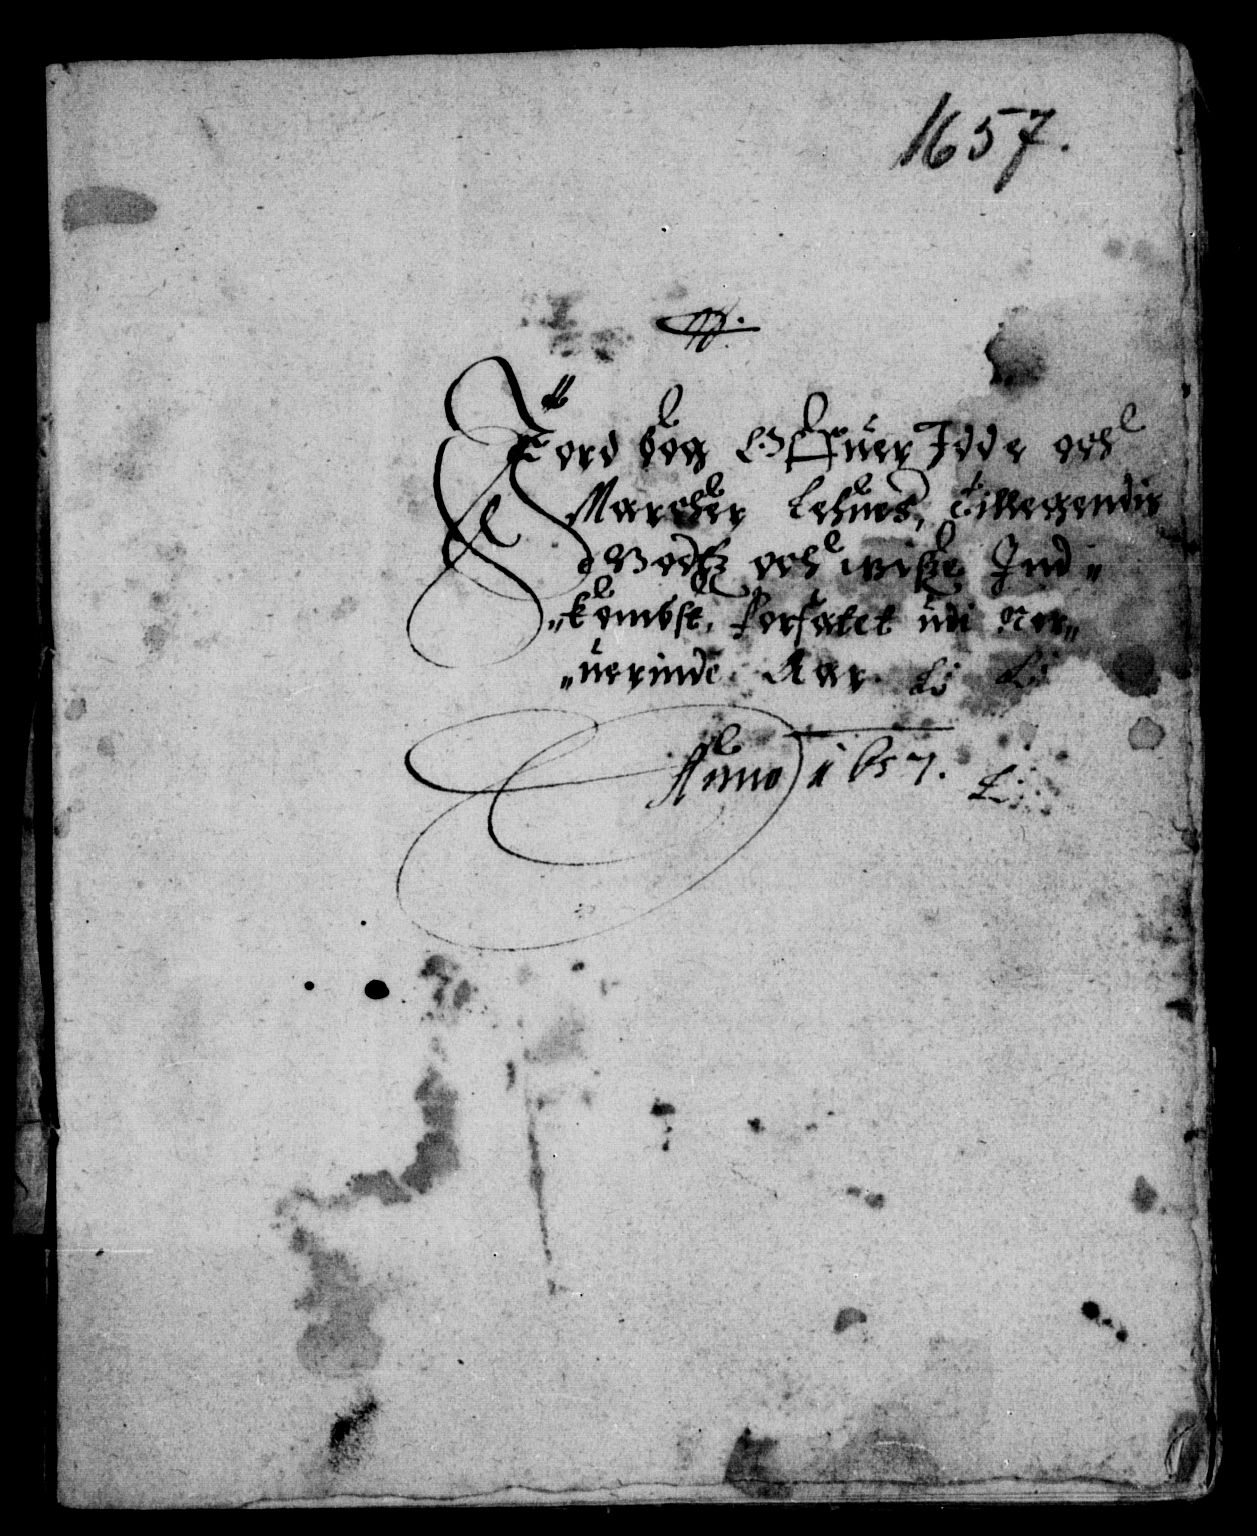 1657.
Jord bog Offuer Idde och
Marcher Lehnes, tillegendis
Godtz och wiße Ind„
„kombst, forfatet udi Ner„
„uerinde Aar
Anno 1657.